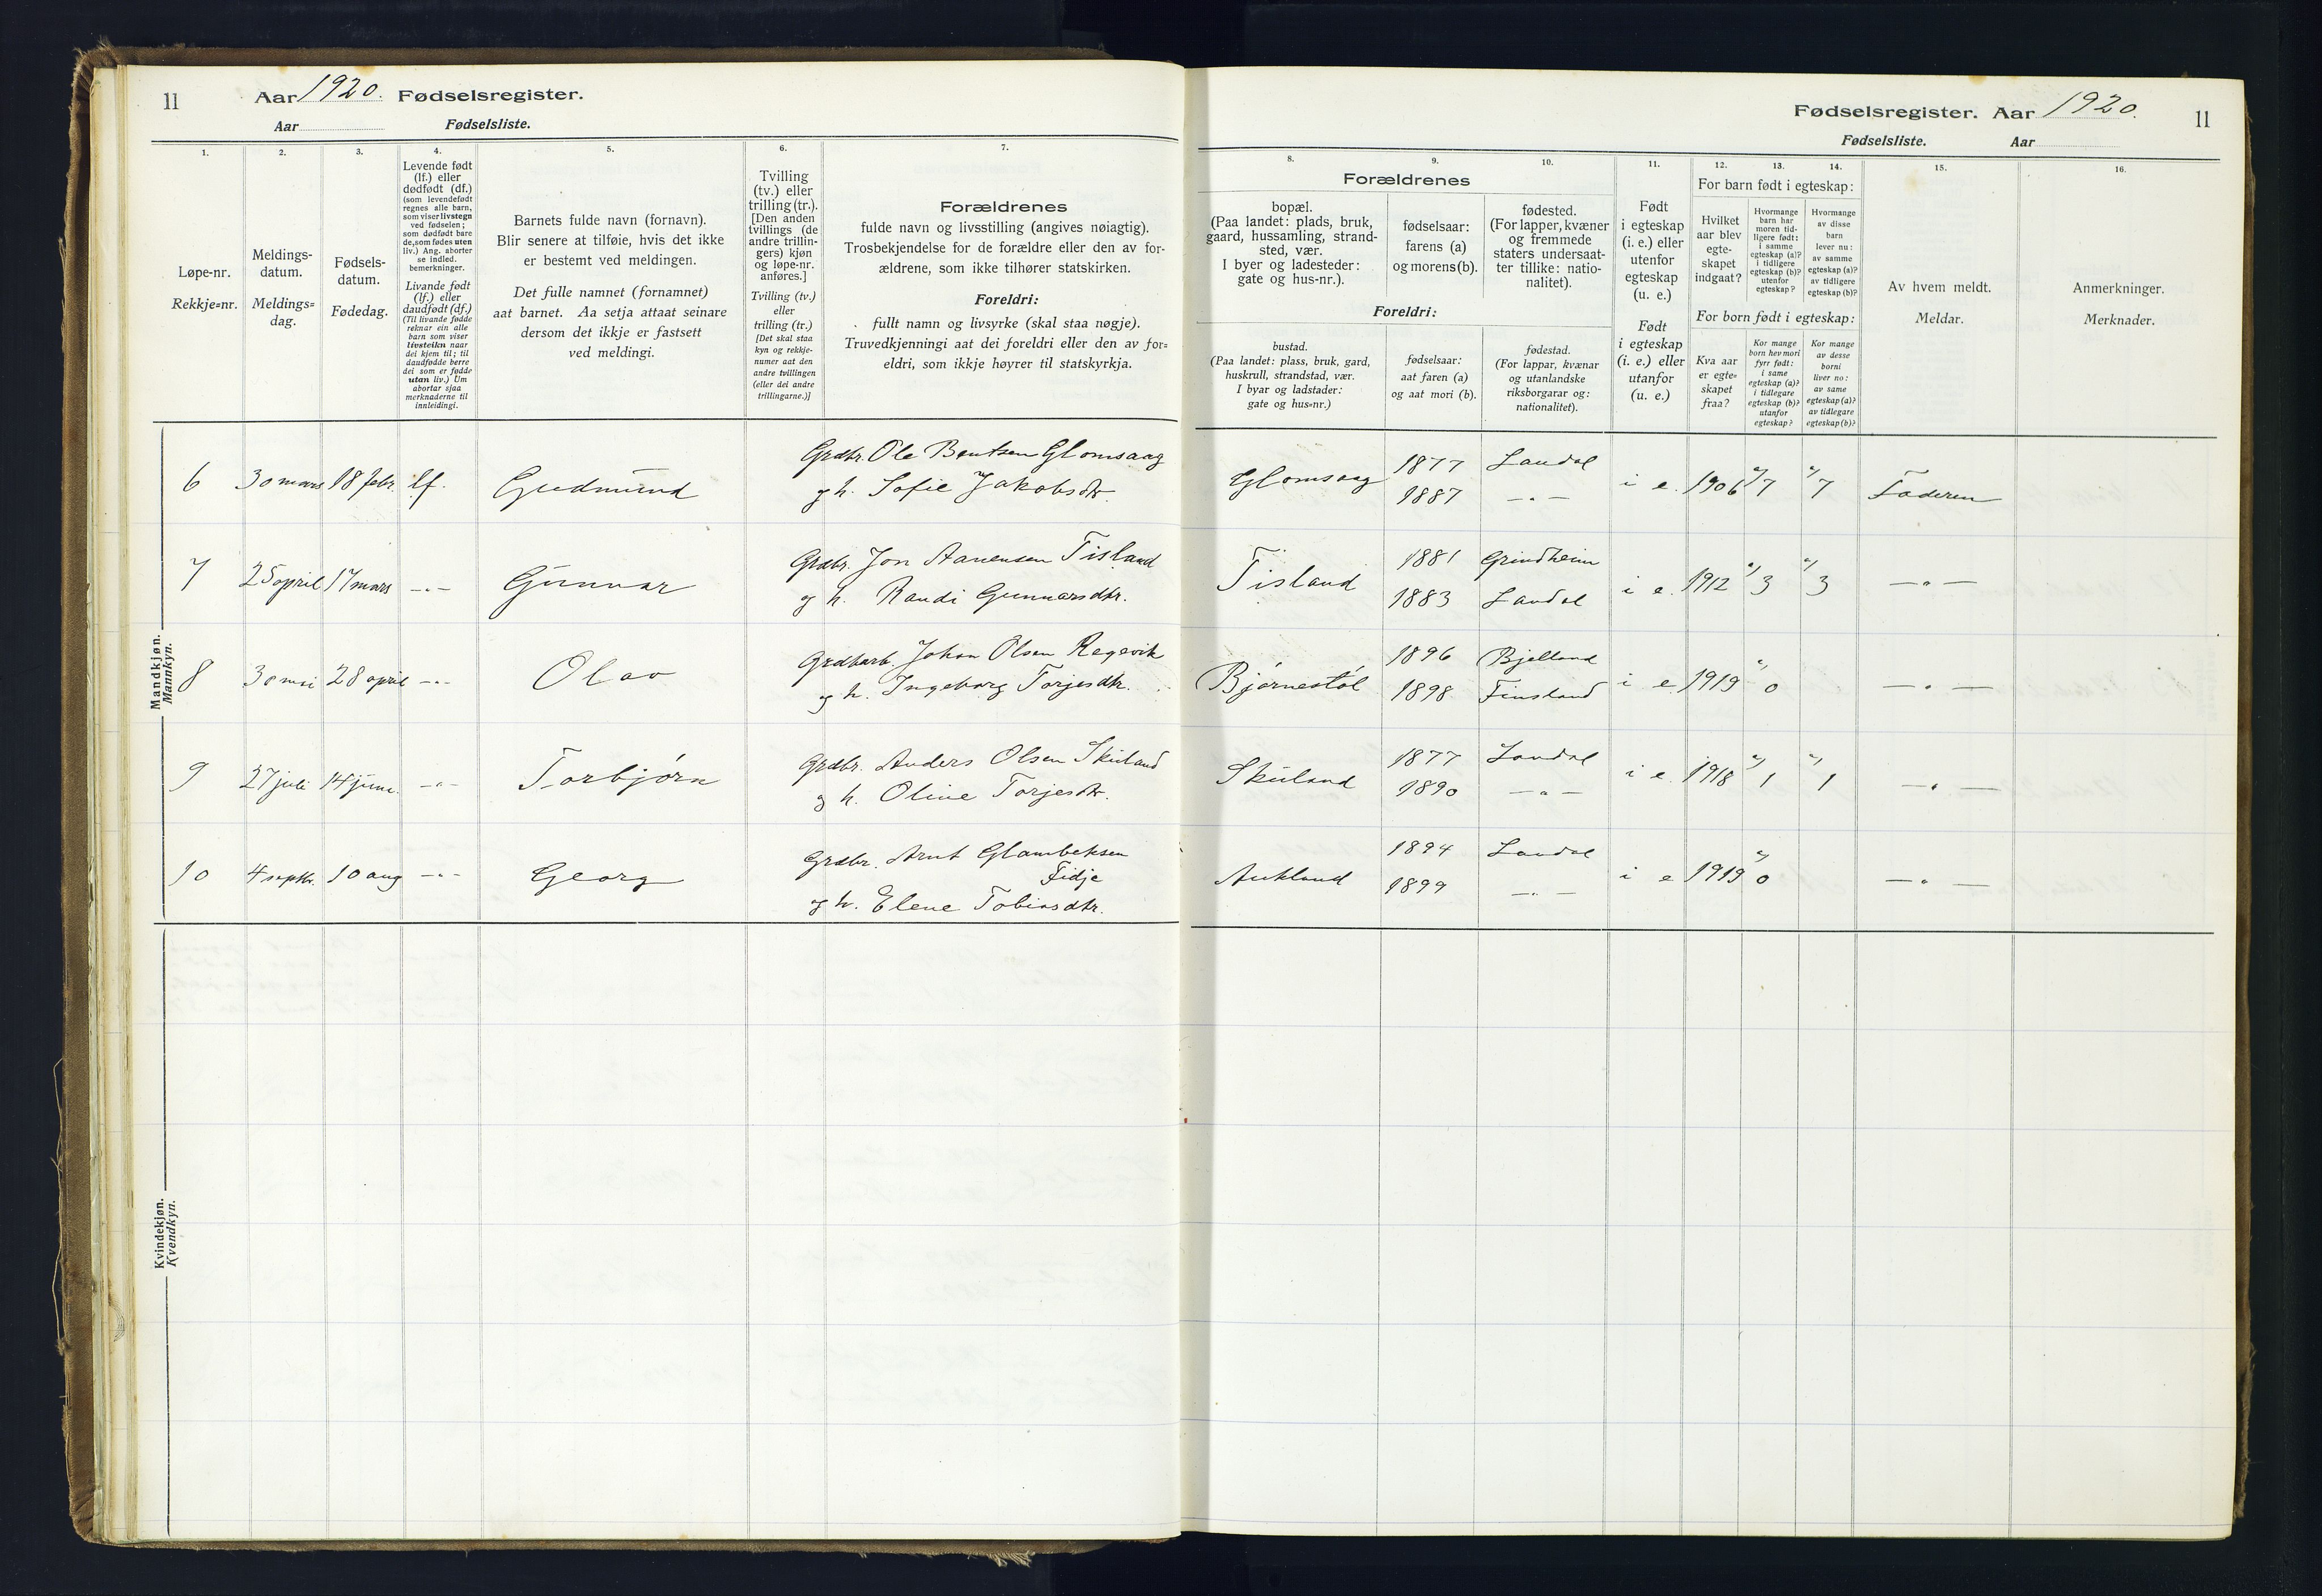 11
Aar 1920. Fødselsregister.
Aar Fødselsliste.
1.
Løpe-nr.
Rekkje=nr.
2.
Meldings-
datum.
Meldings=
dag.
3.
Fødsels-
datum.
Fødedag.
4.
Levende født
(lf.) eller
dødfødt (df.)
(som levendefødt
regnes alle barn,
som viser livstegn
ved fødselen;
som dødfødt bare
de, som fødes uten
liv.) Ang. aborter
se indled.
bemerkninger.
Livande født
(lf.) eller
daudfødt (df.)
(Til livande fødde
reknar ein alle
barn som viser
livsteikn naar
dei kjem til; til
daudfødde berre
dei som er fødde
utan liv.) Um
abortar sjaa
merknaderne til
innleidingi.
5.
Barnets fulde navn (fornavn).
Blir senere at tilføie, hvis det ikke
er bestemt ved meldingen.
Det fulle namnet (fornamnet)
aat barnet. Aa setja attaat seinare
dersom det ikkje er fastsett
ved meldingi.
6.
Tvilling
(tv.) eller
trilling (tr.).
[Den anden
tvillings (de
andre trillin-
gers) kjøn
og løpe-nr.
anføres.]
Tvilling (tv.)
eller
trilling (tr.)
[Det skal staa
kyn og rekkje-
numer aat den
andre tvillingen
(eller dei andre
trillingarne.)]
7.
Forældrenes
fulde navn og livsstilling (angives nøiagtig).
Trosbekjendelse for de forældre eller den av for-
ældrene, som ikke tilhører statskirken.
Foreldri:
fullt namn og livsyrke (skal staa nøgje).
Truvedkjenningi aat dei foreldri eller den av for=
eldri, som ikkje høyrer til statskyrkja.
Mandkjøn.
Mannkyn.
6 30 mars 18 febr. lf. Gudmund Grdbr. Ole Bentsen Glomsaag
og h. Sofie Jakobsdtr.
7 25 april 17 mars -"- Gunnar Grdbr. Jon Aanensen Tisland
og h. Randi Gunnarsdtr.
8 30 mai 28 april -"- Olav Grdbarb. Johan Olsen Regevik
og h. Ingeborg Torjesdtr.
9 27 juli 14 juni. -"- Torbjørn Grdbr. Anders Olsen Skuland
og h. Oline Torjesdtr.
10 4 septbr. 10 aug -"- Georg Grdbr. Arnt Glambeksen
Fidje
og h. Elene Tobiasdtr.
Kvindekjøn.
Kvendkyn.
Fødselsregister. Aar 1920. 11
Fødselsliste. Aar
Forældrenes
8.
bopæl.
(Paa landet: plads, bruk,
gaard, hussamling, strand-
sted, vær.
I byer og ladesteder:
gate og hus-nr.).
9.
fødselsaar:
farens (a)
og morens (b).
10.
fødested.
(For lapper, kvæner
og fremmede
staters undersaat-
ter tillike: natio-
nalitet).
Foreldri:
bustad.
(Paa landet: plass, bruk, gard,
huskrull, strandstad, vær.
I byar og ladstader:
gate og hus=nr.)
fødselsaar:
aat faren (a)
og aat mori (b).
fødestad.
(For lappar, kvænar
og utanlandske
riksborgarar og:
nationalitet).
11.
Født
i egteskap
(i. e.) eller
utenfor
egteskap
(u. e.)
Født
i egteskap
(i. e.) eller
utanfor
(u. e.)
For barn født i egteskap:
12.
Hvilket
aar blev
egte-
skapet
indgaat?
13.
Hvormange
barn har
moren tid-
ligere født:
i samme
egteskap (a)?
i tidligere
egteskap (b)?
utenfor
egteskap?
14.
Hvormange
av disse
barn
lever nu:
av samme
egteskap (a)?
av tidligere
egteskap (b)?
For born født i egteskap:
Kva aar
er egte=
skapet
fraa?
Kor mange
born hev mori
fyrr født:
i same
egteskap (a)?
i tidlegare
egteskap (b)?
utanfor
egteskap?
Kor mange
av desse
borni
liver no:
av same
egteskap (a)?
av tidlegare
egteskap (b)?
15.
Av hvem meldt.
Meldar.
16.
Anmerkninger.
Merknader.
Glomsaag 1877 Laudal i e. 1906 a) 7 a) 7 Faderen
1887 -"-
Tisland 1881 Grindheim i e. 1912 a) 3 a) 3 -"-
1883 Laudal
Bjørnestøl 1896 Bjelland i e 1919 a) 0 -"-
1898 Finsland
Skuland 1877 Laudal i e. 1918 a) 1 a) 1 -"-
1890 -"-
Aukland 1894 Laudal i e 1919 a) 0 -"-
1899 -"-